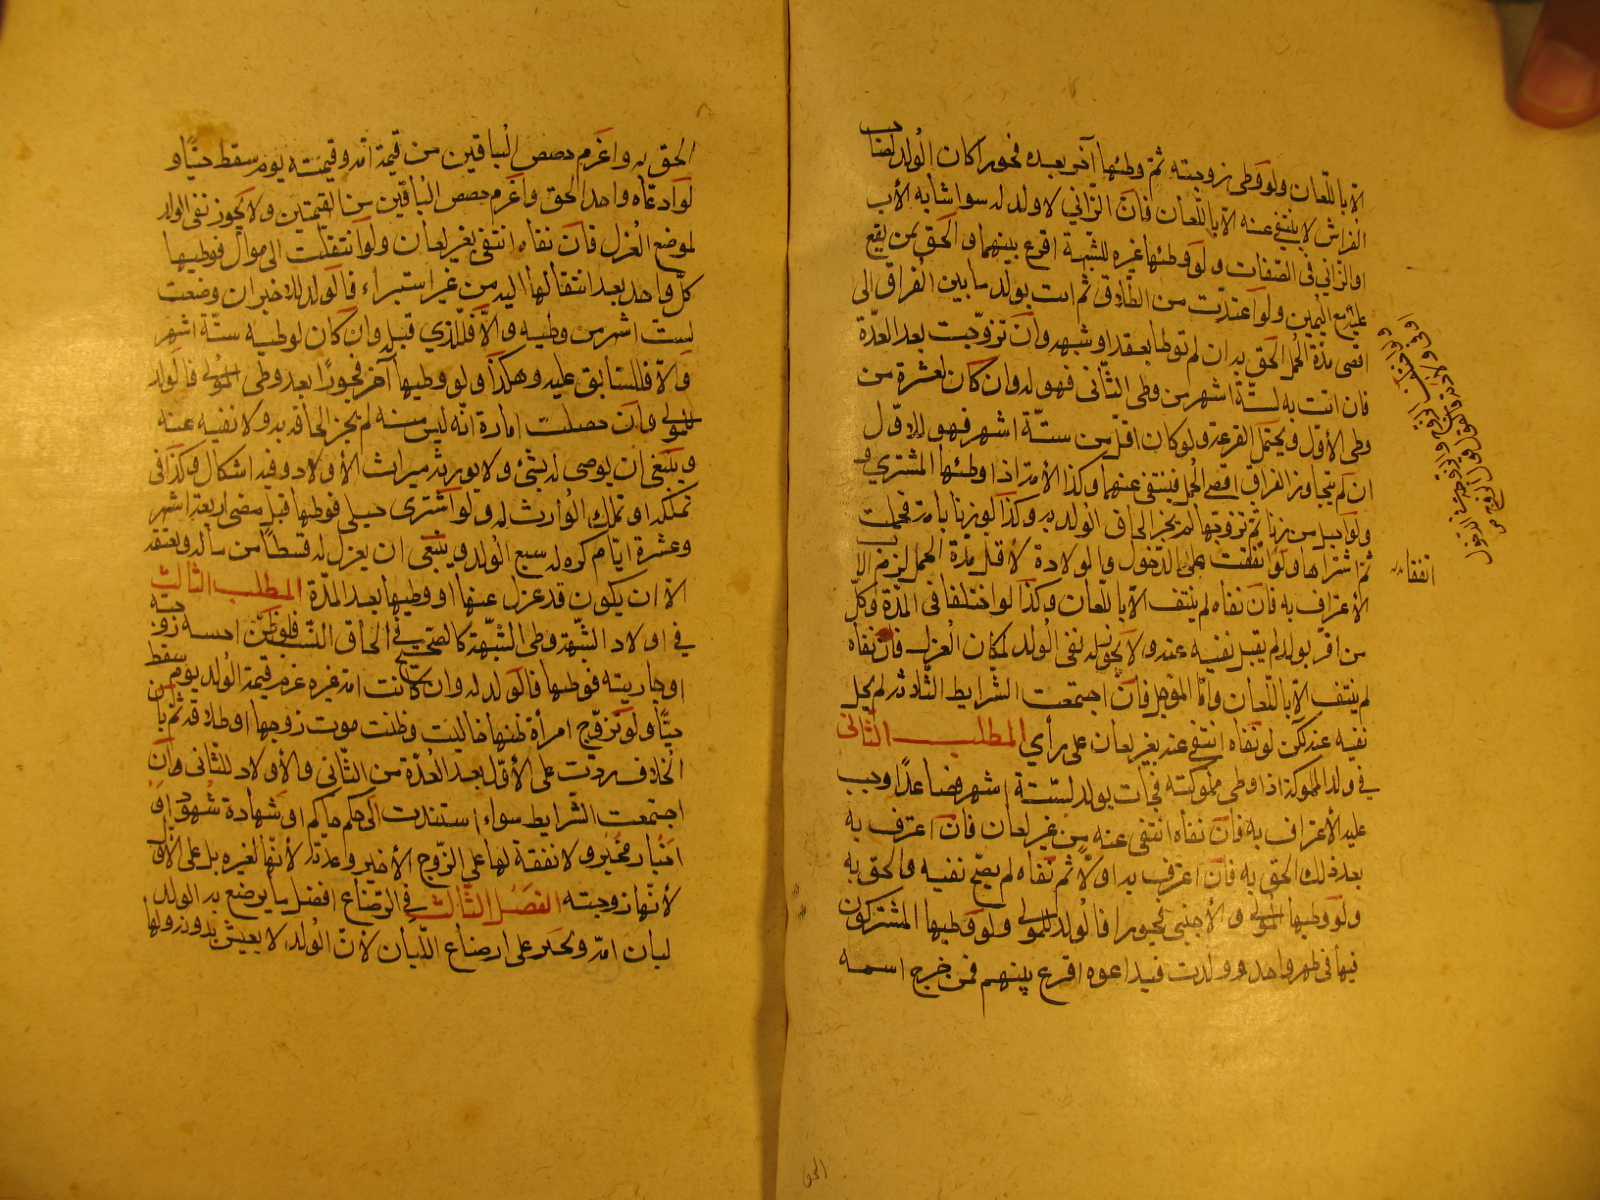 الّا باللّعان ولو وطى زوجته ثمّ وطئها آخر بعده فجورا كان الولد لصاحب
الفراش لا ينتفى عنه الّا باللّعان فانّ الزّاني لا ولد له سوا شابه الأب
او الزّاني فى الصّفات ولو وطئها غيره للشّبهة اقرع بينهما و الحق بمن يقع
عليه اليمين ولو اعتدّت من الطّلاق ثم اتت بولد ما بين الفراق الى
اقصى مدّة الحمل الحق به ان لم توطا بعقد او شبهه وان تزوّجت بعد العدّة
فان اتت به لستّة اشهر من وطى الثّانى فهو له وان كان لعشرة من
وطى الأوّل ويحتمل القرعة ولو كان اقلّ من ستّة اشهر فهو للاوّل
ان لم يتجاوز الفراق اقصى الحمل فينتفى عنهما وكذا الأمة اذا وطئها المشترى و
ولو احبل من زنا ثم تزوّجها لم يجز الحاق الولد به وكذا لو زنا بامة فحملت
ثمّ اشتراها ولو اتفقت على الدّخول والولادة لأقل مدة الحمل لزمه الا
لأعتراف به فان نفاه لم ينتف الّا باللّعان وكذا لو اختلفا فى المدّة وكلّ
من اقر بولد لم يقبل نفيه عنه ولا يجوز له نفى الولد لمكان العزل فان نفاه
لم ينتف الّا باللّعان وامّا المؤجل فان اجتمعت الشرايط الثّلاثة لم يحل
نفيه عنه لكن لو نفاه انتفى عنه بغير لعان على رأي المطلب الثّانى
فى ولد المملوكة اذا وطى مملوكته فجات بولد لستّة اشهر فصاعدًا وجب
عليه الأعتراف به فان نفاه انتفى عنه من غير لعان فان اعترف به
بعد ذلك الحق به فان اعترف به اولّا ثم نفاه لم يصحّ نفيه والحق به
ولو وطيها المولى و الأجنبى فجورا فالولد للمولى ولو وطيها المشتركون
فيها فى طهر واحد وولدت فتداعوه اقرع بينهم فمن خرج اسمه
ولو اختلف الزوج والزوجة فى الدخول
او فى ولادته فالقول قول الزوج من
اتفقا
الحق
الحق به واغرم حصص الباقين من قيمة امّه وقيمته يوم سقط حيًّا و
لو ادعاه واحد الحق واغرم حصص الباقين من القيمتين ولا يجوز نفى الولد
لموضع العزل فان نفاه انتفى بغير لعان ولو انتقلت الى موال فوطيها
كلّ واحد بعد انتقالها اليه من غير استبراء فالولد للاخير ان وضعت
لست اشهر من وطيه والّا فللذي قبله وان كان لوطيه ستّة اشهر
والّا فللسابق عليه وهكذا ولو وطيها آخر فجورًا بعد وطى المولى فالولد
للمولى وان حصلت امارة انّه ليس منه لم يجز الحاقه به ولا نفيه عنه
وينبغى ان يوصى له بشئ ولا يورثه ميراث الأولاد وفيه اشكال وكذا فى
تملكه او تملك الوارث له ولو اشترى حبلى فوطئها قبل مضى اربعة اشهر
وعشرة ايّام كره له بيع الولد وينبغى ان يعزل له قسطًا من ماله ويعتقه
الّا ان يكون قد عزل عنها او وطيها بعد المدّة المطلب الثالث
فى اولاد الشّبهة وطى الشّبهة كالصّحيح فى الحاق النّسب فلو ظنّ اجنبية زوجته
او جاريته فوطئها فالولد له وان كانت امة غيره غرم قيمة الولد يوم سقط
حيًّا ولو تزوّج امرأة ظنّها خالية وظنت موت زوجها او طلاقه ثم بان
الخلاف ردّت على الأوّل بعد العدّة من الثّانى والأولاد للثّانى وان
اجتمعت الشرايط سواء استندت الى حكم حاكم او شهادة شهود او
اخبار مخبر ولا نفقة لها على الزّوج الأخير وعدته لأنّها لغيره بل على الأوّل
لأنّها زوجته الفصل الثّالث فى الرّضاع افضل ما يرضع به الولد
لبان امّه وتجبر على ارضاع اللّبان لأنّ الولد لا يعيش بدونه ولها